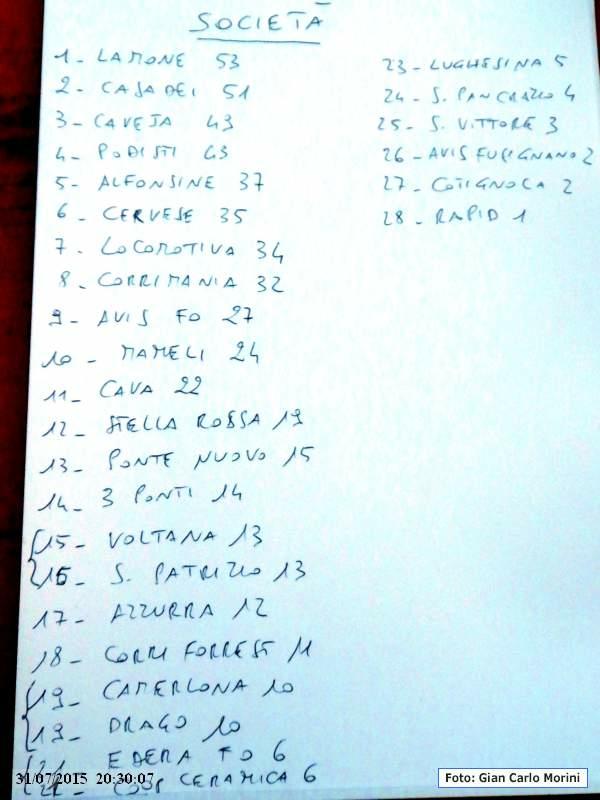 SOCIETÀ
1 - LAMONE 53
2 - CASADEI 51
3 - CAVEJA 43
4 - PODISTI 43
5 - ALFONSINE 37
6 - CERVESE 35
7 - LOCOMOTIVA 34
8 - CORRIMANIA 32
9 - AVIS FO 27
10 - MAMELI 24
11 - CAVA 22
12 - STELLA ROSSA 19
13 - PONTE NUOVO 15
14 - 3 PONTI 14
15 - VOLTANA 13
15 - S. PATRIZIO 13
17 - AZZURRA 12
18 - CORRI FORREST 11
19 - CAMERLONA 10
19 - DRAGO 10
21 - EDERA FO 6
21 - COOP CERAMICA 6
23 - LUGHESINA 5
24 - S. PANCRAZIO 4
25 - S. VITTORE 3
26 - AVIS FUSIGNANO 2
27 - COTIGNOLA 2
28 - RAPID 1
31/07/2015 20:30:07
Foto: Gian Carlo Morini